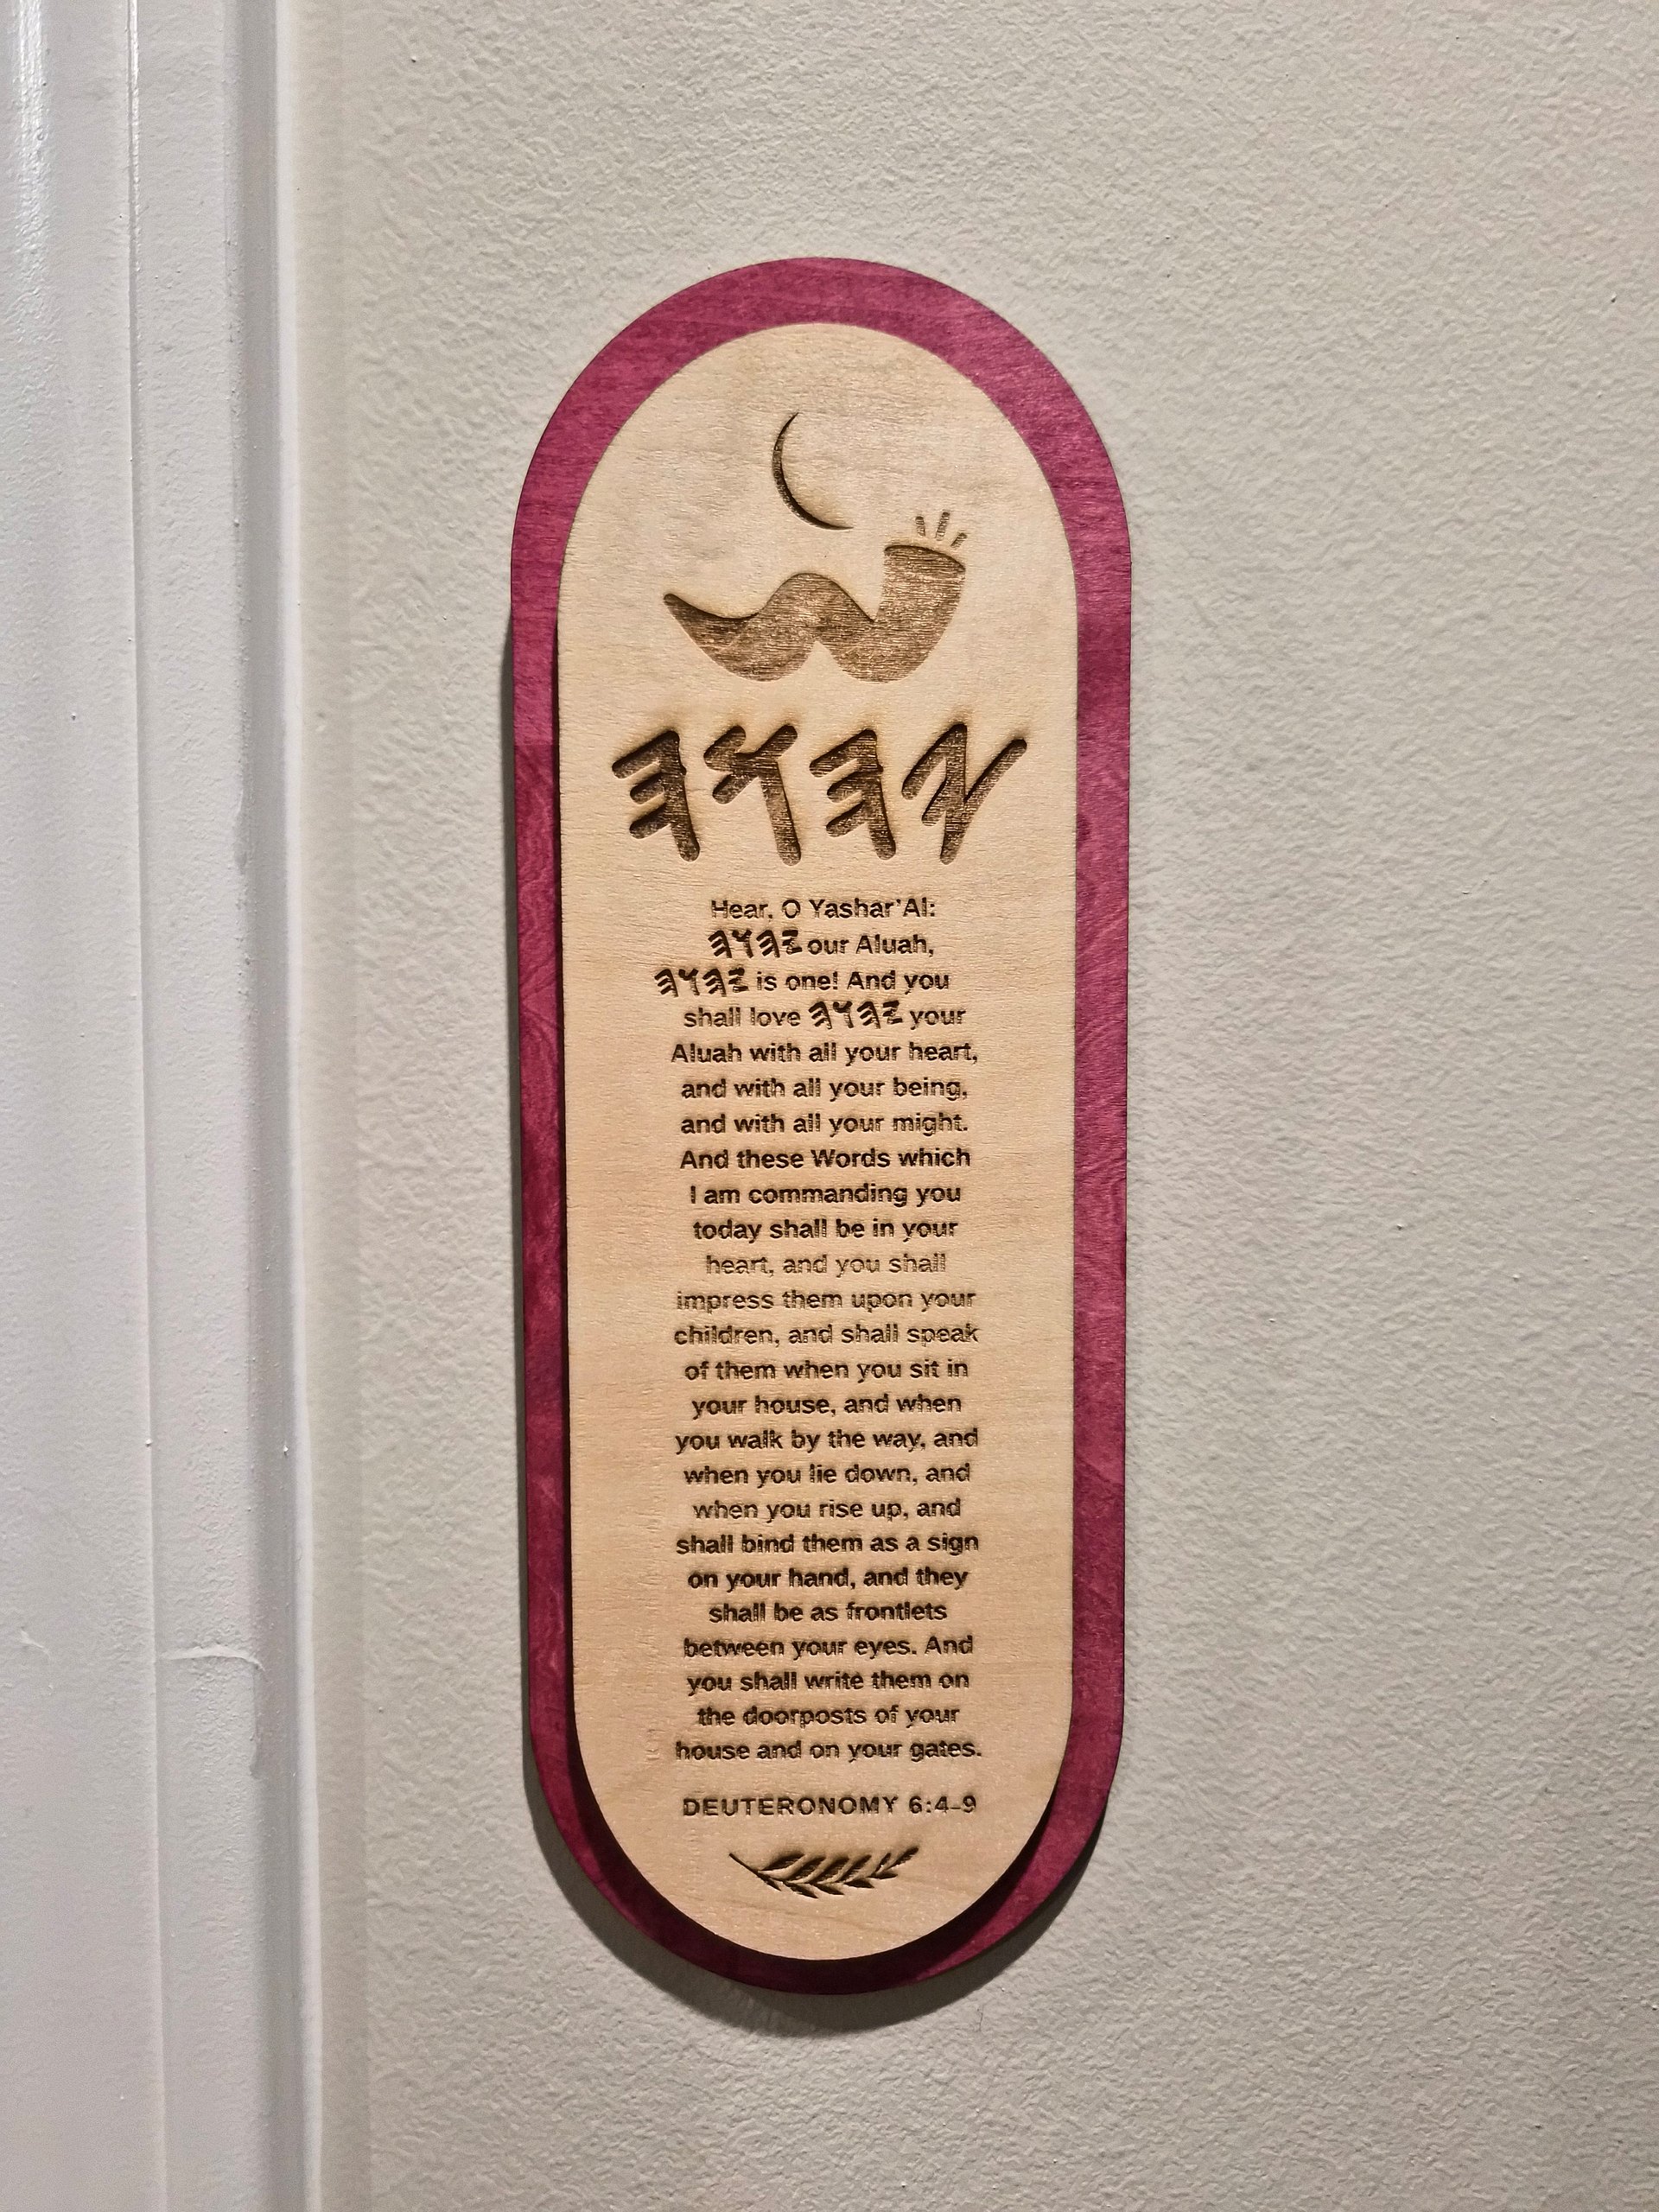 𐤉𐤄𐤅𐤄
Hear, O Yashar'Al:
𐤉𐤄𐤅𐤄 our Aluah,
𐤉𐤄𐤅𐤄 is one! And you
shall love 𐤉𐤄𐤅𐤄 your
Aluah with all your heart,
and with all your being,
and with all your might.
And these Words which
I am commanding you
today shall be in your
heart, and you shall
impress them upon your
children, and shall speak
of them when you sit in
your house, and when
you walk by the way, and
when you lie down, and
when you rise up, and
shall bind them as a sign
on your hand, and they
shall be as frontlets
between your eyes. And
you shall write them on
the doorposts of your
house and on your gates.
DEUTERONOMY 6:4-9